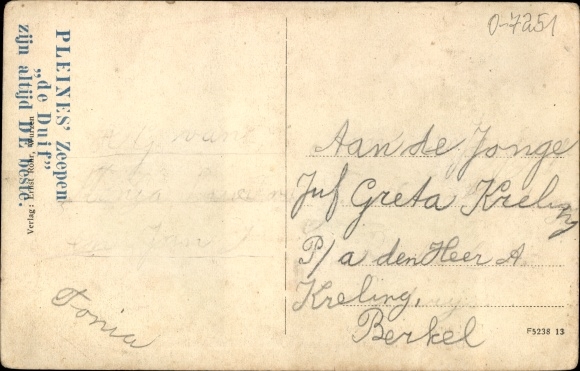 0-7251
PLEINES' Zeepen
„de Duif”
zijn altijd DE beste.
Verlag: Ernst Rohr,
Aan de Jonge
Juf Greta Kreling
P/a den Heer A
Kreling,
Berkel
Tonia
F5238 13